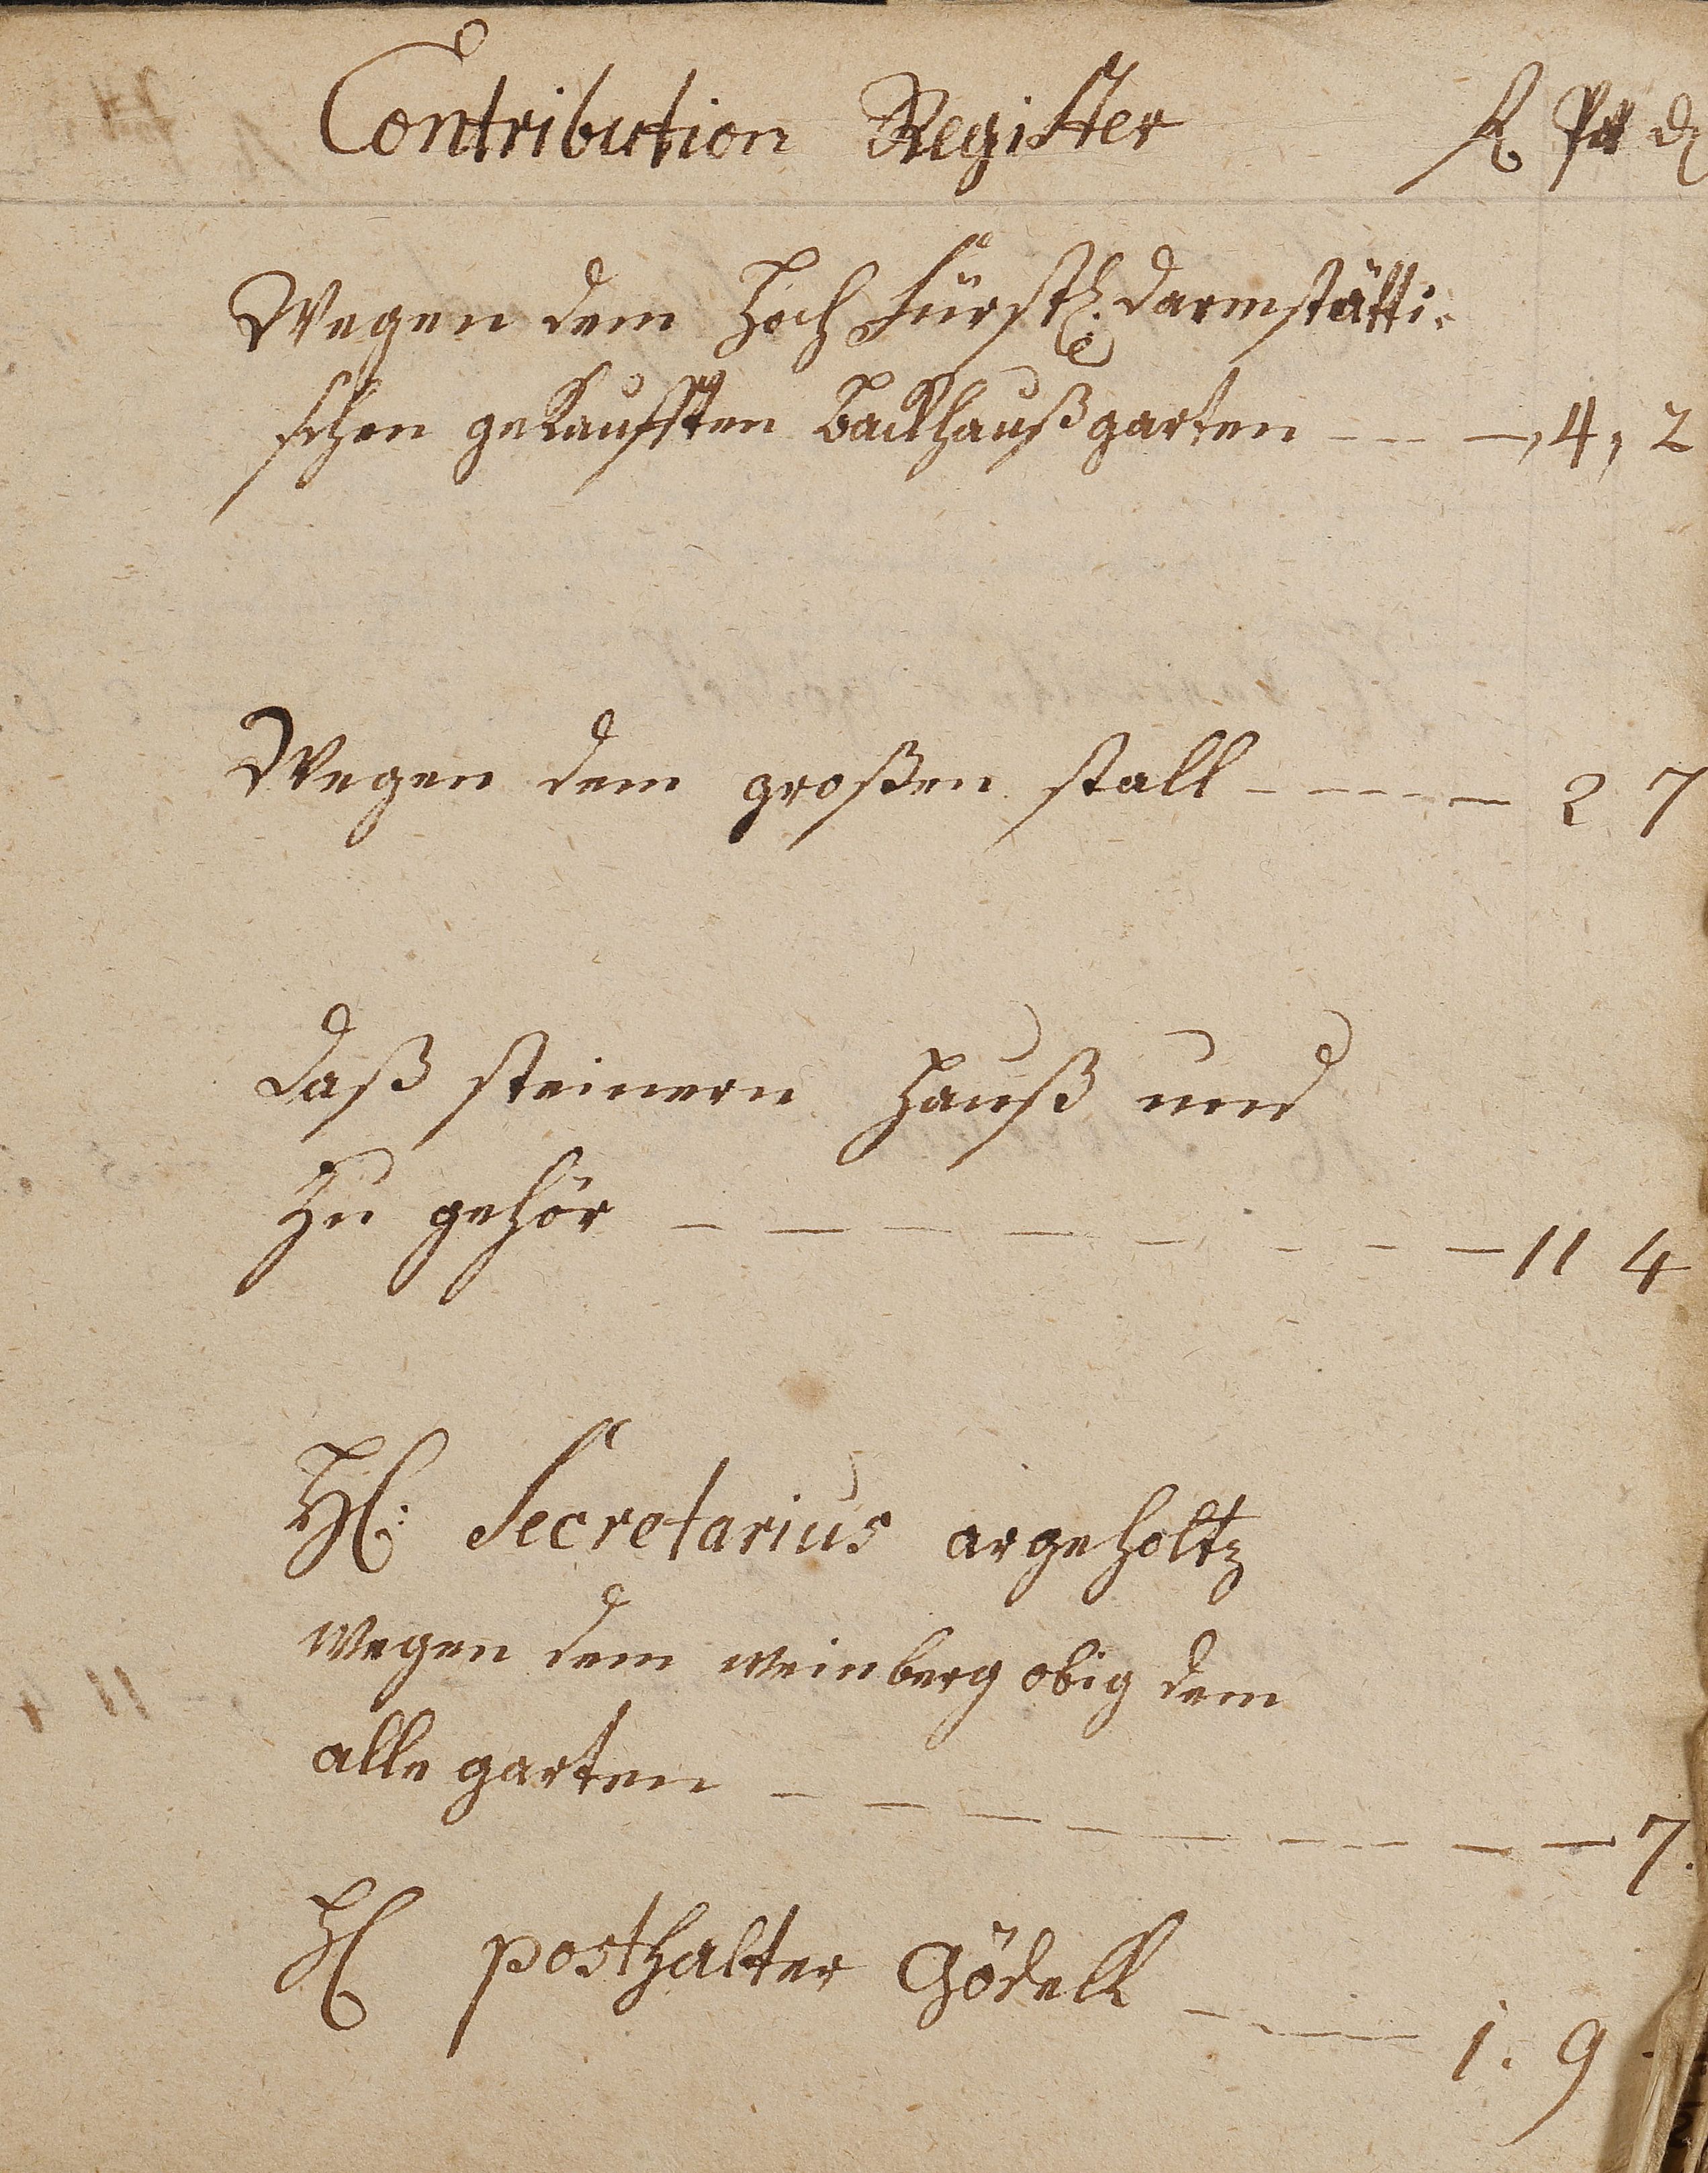 Contribution Register fl Pf d
Wegen dem Hoch Fürstl: darmstätti-
schen gekaufften backhauß garten - - - , 4 , 2
Wegen dem großen stall - - - - 2 7
daß steinern Hauß und
Zu gehör - - - - - - - - 11 4
H: Secretarius argeholtz
wegen dem weinberg obig dem
alle garten - - - - - - - - - 7.
H posthalter Gödell - - - 1. 9.